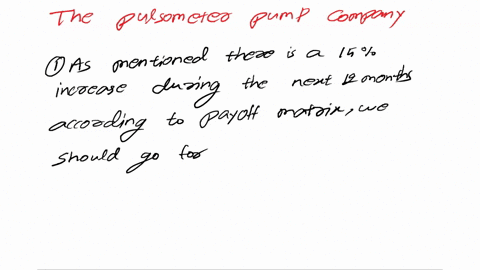 The pulsometer pump company
① As mentioned there is a 15%
increase during the next 12 months
according to payoff matrix, we
should go for